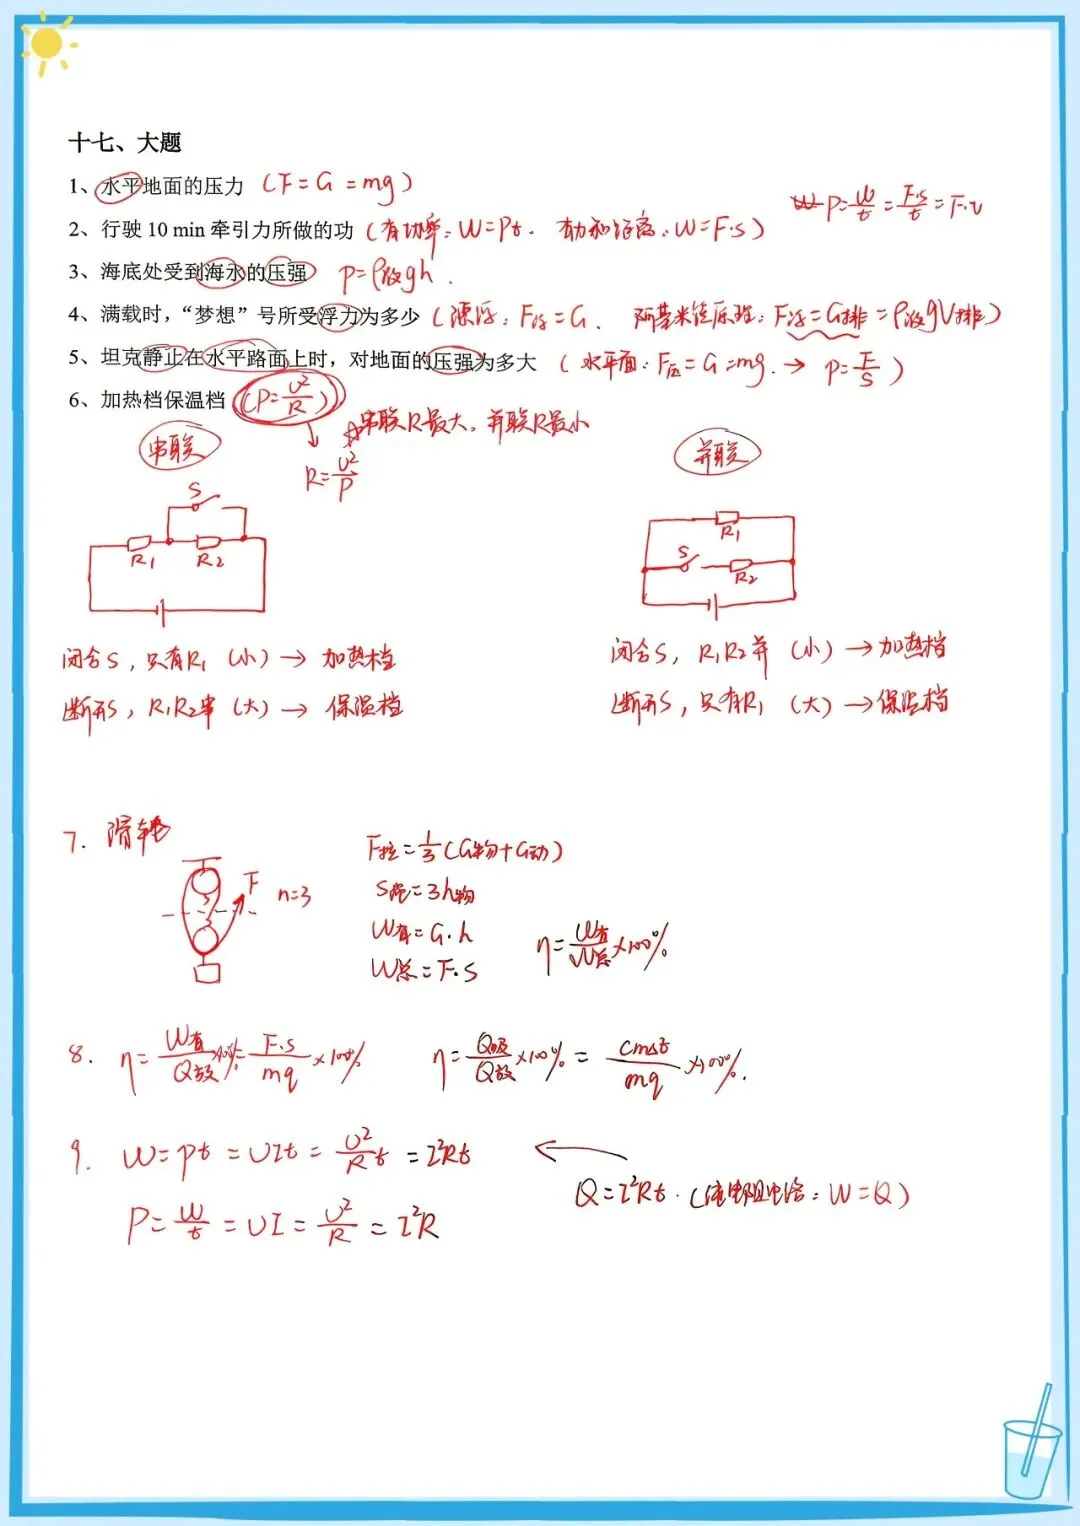 十七、大题
1、水平地面的压力 (F=G=mg)
W P=W/t=F·s/t=F·v
2、行驶 10 min 牵引力所做的功 (有功率：W=Pt. 有力和距离：W=F·s)
3、海底处受到海水的压强 p=ρ液gh.
4、满载时，“梦想”号所受浮力为多少 (漂浮：F浮=G、 阿基米德原理：F浮=G排=ρ液gV排)
5、坦克静止在水平路面上时，对地面的压强为多大 (水平面：F压=G=mg. → p=F/S)
6、加热档保温档 (P=U²/R)
☆串联R最大，并联R最小
R=U²/P
串联
并联
S
R1 R2
R1
S
R2
闭合S，只有R1 (小) → 加热档
断开S，R1R2串 (大) → 保温档
闭合S，R1R2并 (小) → 加热档
断开S，只有R1 (大) → 保温档
7. 滑轮
F n=3
F拉=1/3(G物+G动)
S绳=3h物
W有=G·h
W总=F·s
η=W有/W总×100%
8. η=W有/Q放×100%=F·s/mq×100% η=Q吸/Q放×100%=cmΔt/mq×100%.
9. W=Pt=UIt=U²/R t=I²Rt ←
Q=I²Rt.(纯电阻电路：W=Q)
P=W/t=UI=U²/R=I²R